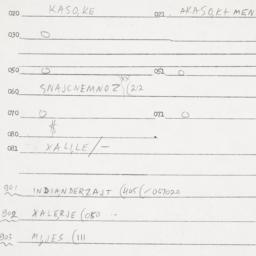 020 KASO,KE 021 AKASO,K+MEN
030 O
050 O 051 O
060 SNAJCNEMNOZ XX (2/2
070 O 071 O
080
081 XALI,LE/—
901 INDIANDERZAJT (405(/067020
902 XALERJE (080 -
903 MI,JES (111